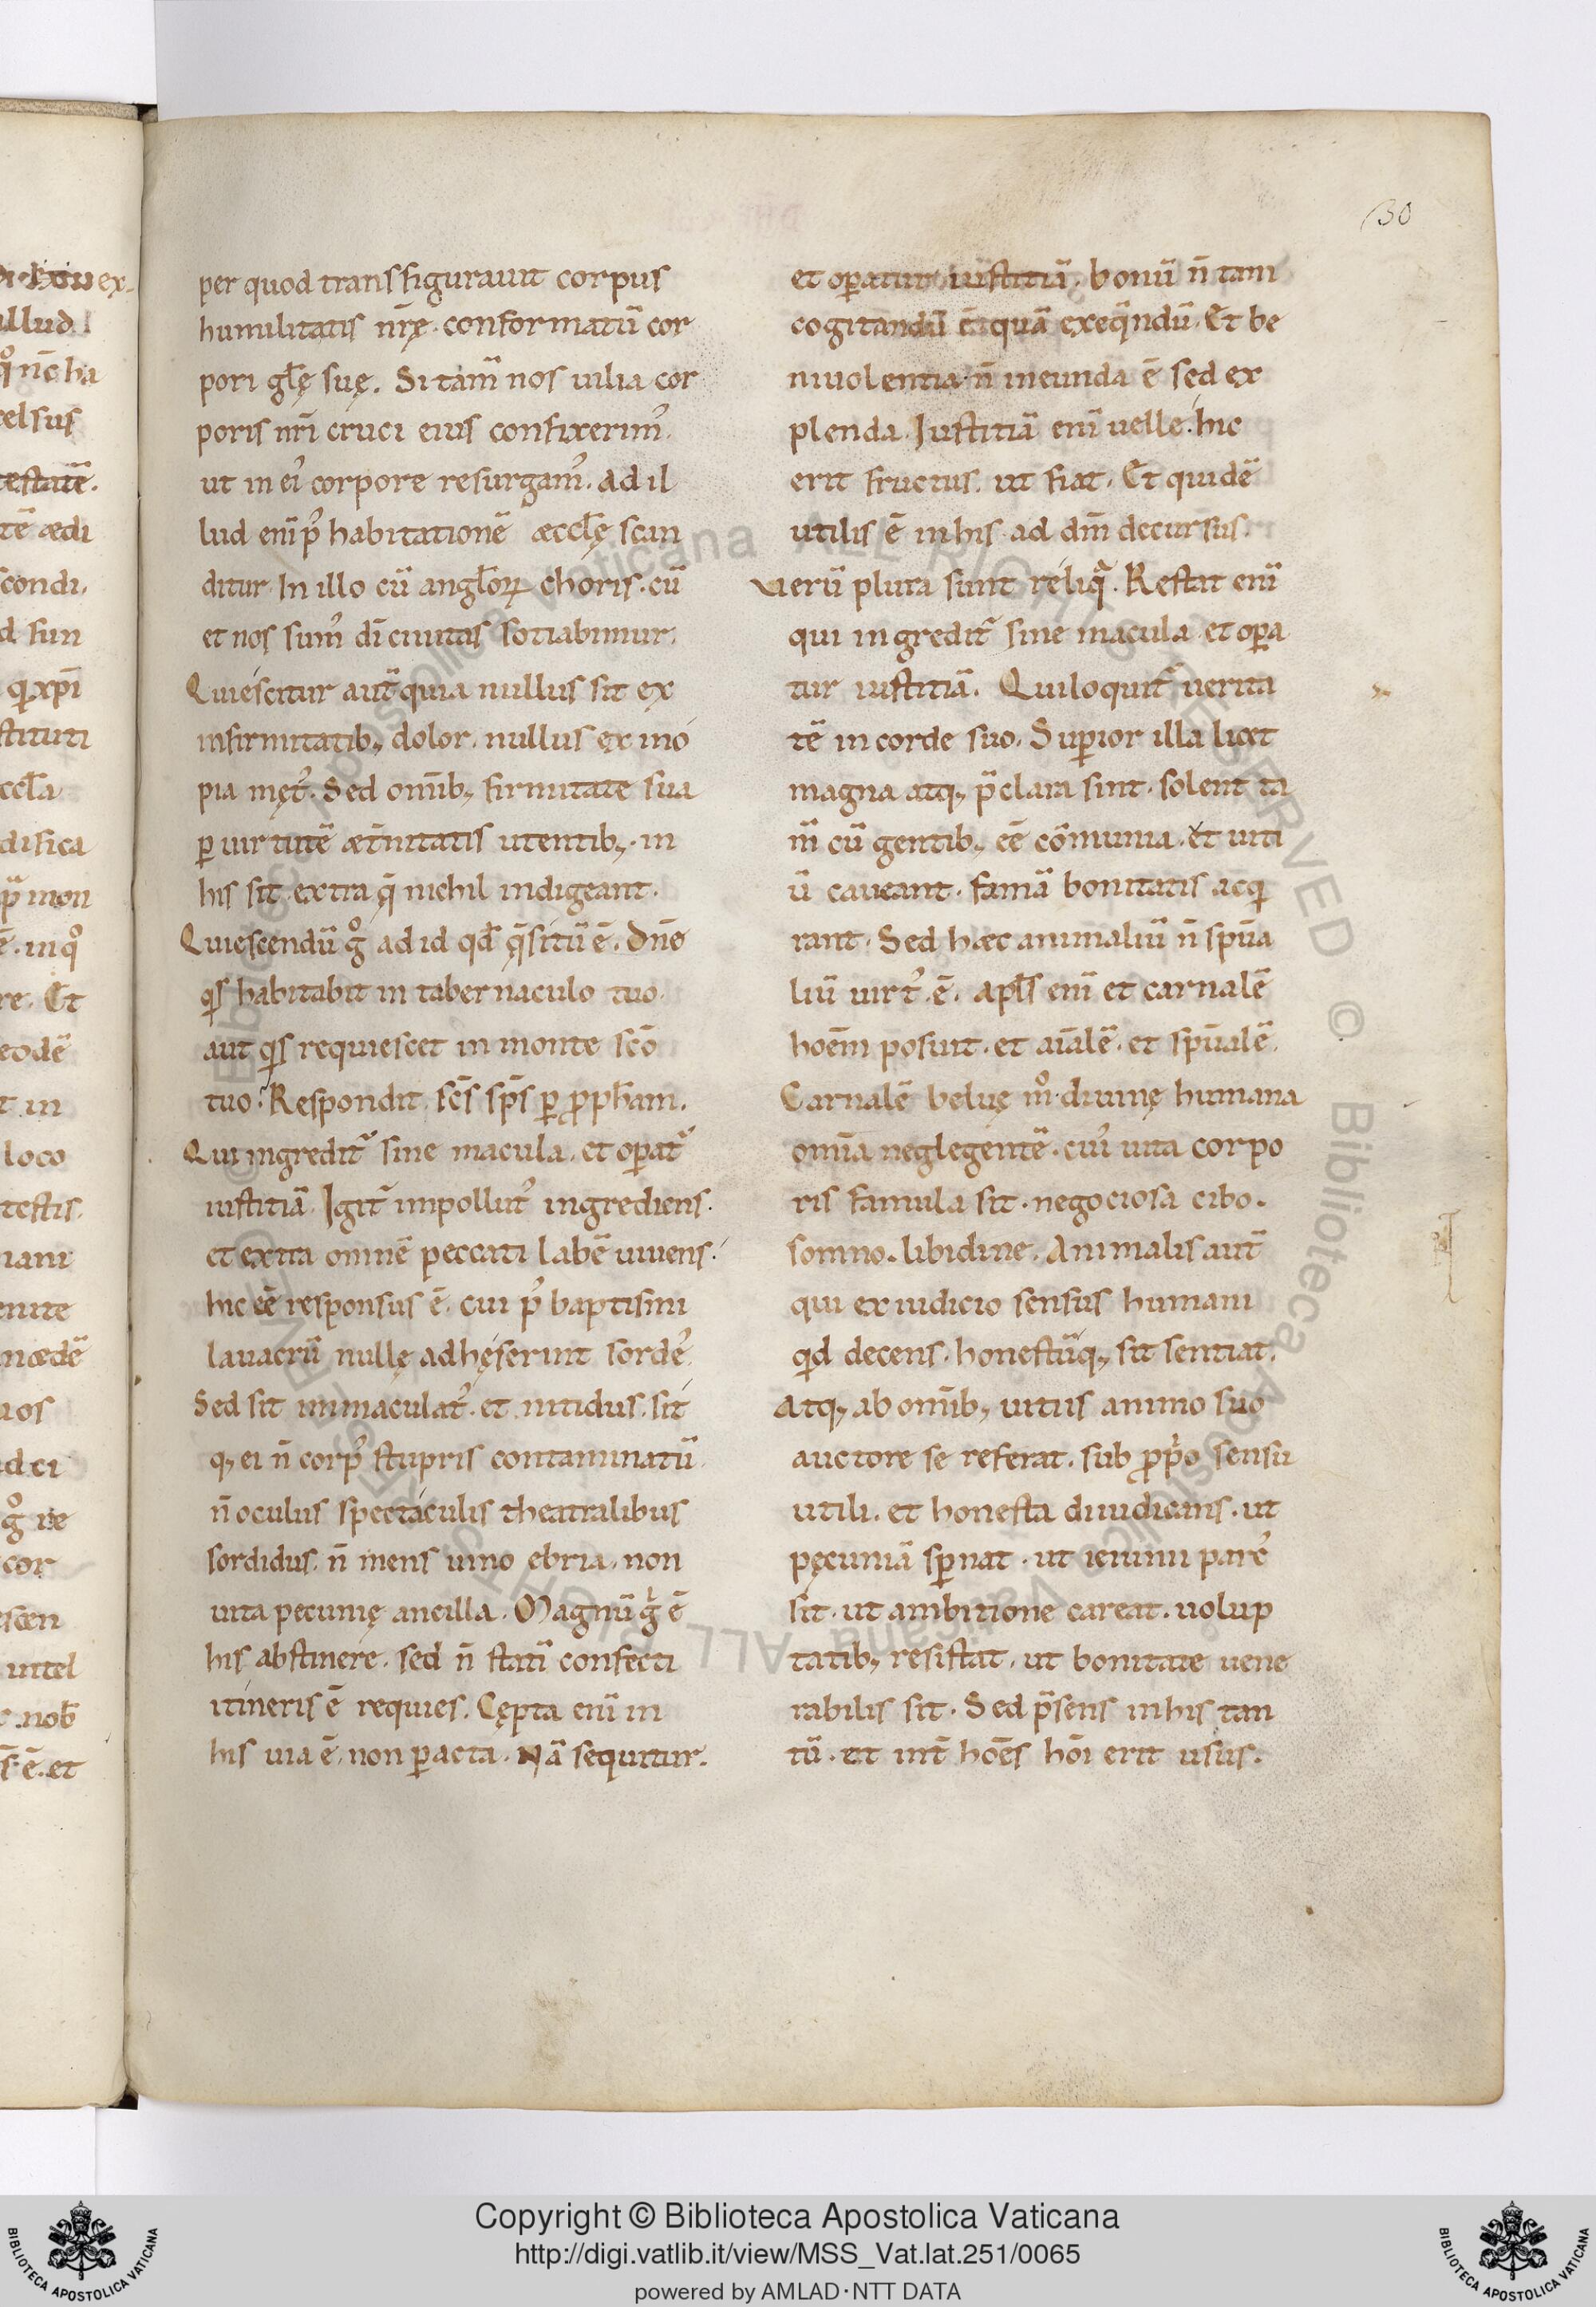 30
per quod transfigurauit corpus
humilitatis nr̄ę. conformatū cor
pori gl̄ę suę. Si tam̄ nos uilia cor
poris nr̄i cruci eius confixerim᾽.
ut in ei᾽ corpore resurgam᾽. ad il
lud enī p᾽ habitationē æccl̄ę scan
ditur. In illo cū angl̄oꝝ choris. cū
et nos sum᾽ dī ciuitas sotiabimur.
Quiescitur aut̄ quia nullus sit ex
infirmitatib; dolor. nullus ex ino
pia męt᾽. Sed omīb; firmitate sua
ꝑ uirtutē æt̄nitatis utentib;. in
his sit extra q̄ nichil indigeant.
Quiescendū gͦ ad id qd̄ q̄sitū ē. Dn̄e
qis habitabit in tabernaculo tuo.
aut qis requiescet in monte scō
tuo. Respondit sc̄s sp̄s ꝑ ꝓph̄am.
Qui ingredit᷑ sine macula. et oꝑat᷑
iustitiā. Igit᷑ impollut᾽ ingrediens.
et extra omnē peccati labē uiuens.
hic eē responsus ē. cui p᾽ baptismi
lauacrū nullę adhęserint sorde᾽.
Sed sit immaculat᾽. et nitidus. sit
q; ei n̄ corp᾽ stupris contaminatū.
n̄ oculus spectaculis theatralibus
sordidus. n̄ mens uino ebria. non
uita pecunię ancilla. Magnū gͥ ē
his abstinere. sed n̄ statī confecti
itineris ē requies. Cępta enī in
his uia ē. non ꝑacta. Nā sequitur.
et oꝑatur iustitiā. bonū n̄ tam
cogitandū ē quā exeq̄ndū. Et be
niuolentia n̄ ineunda ē sed ex
plenda. Iustitiā enī uelle. hic
erit fructus. ut fiat. Et quidē
utilis ē in his ad dm̄ decursus.
Verū plura sunt reliqᷓ. Restat enī
qui ingredit᷑ sine macula et oꝑa
tur iustitiā. Qui loquit᷑ uerita
tē in corde suo. Suꝑior illa licet
magna atq; p̄clara sint. solent ta
m̄ cū gentib; eē cōmunia. et uiti
ū caueant. famā bonitatis acqi
rant. Sed hæc animaliū n̄ spūa
liū uirt᾽ ē. Apl̄s enī et carnalē
hoēm posuit. et aīalē. et spūalē.
Carnalē beluę mͦ. diuinę humana
omīa neglegentē. cui᾽ uita corpo
ris famula sit. negociosa cibo.
somno. libidine. Animalis aut̄
qui ex iudicio sensus humani
qid decens. honestūq; sit sentiat.
Atq; ab omīb; uitiis animo suo
auctore se referat. sub ꝓpͥo sensu
utili. et honesta diiudicans. ut
pęcuniā sꝑnat. ut ieiunii parc᾽
sit. ut ambitione careat. uolup
tatib; resistat. ut bonitate uene
rabilis sit. Sed p̄sens in his tan
tū. et int̄ hoēs hōi erit usus.
Copyright © Biblioteca Apostolica Vaticana
http://digi.vatlib.it/view/MSS_Vat.lat.251/0065
powered by AMLAD·NTT DATA
BIBLIOTECA APOSTOLICA VATICANA
BIBLIOTECA APOSTOLICA VATICANA